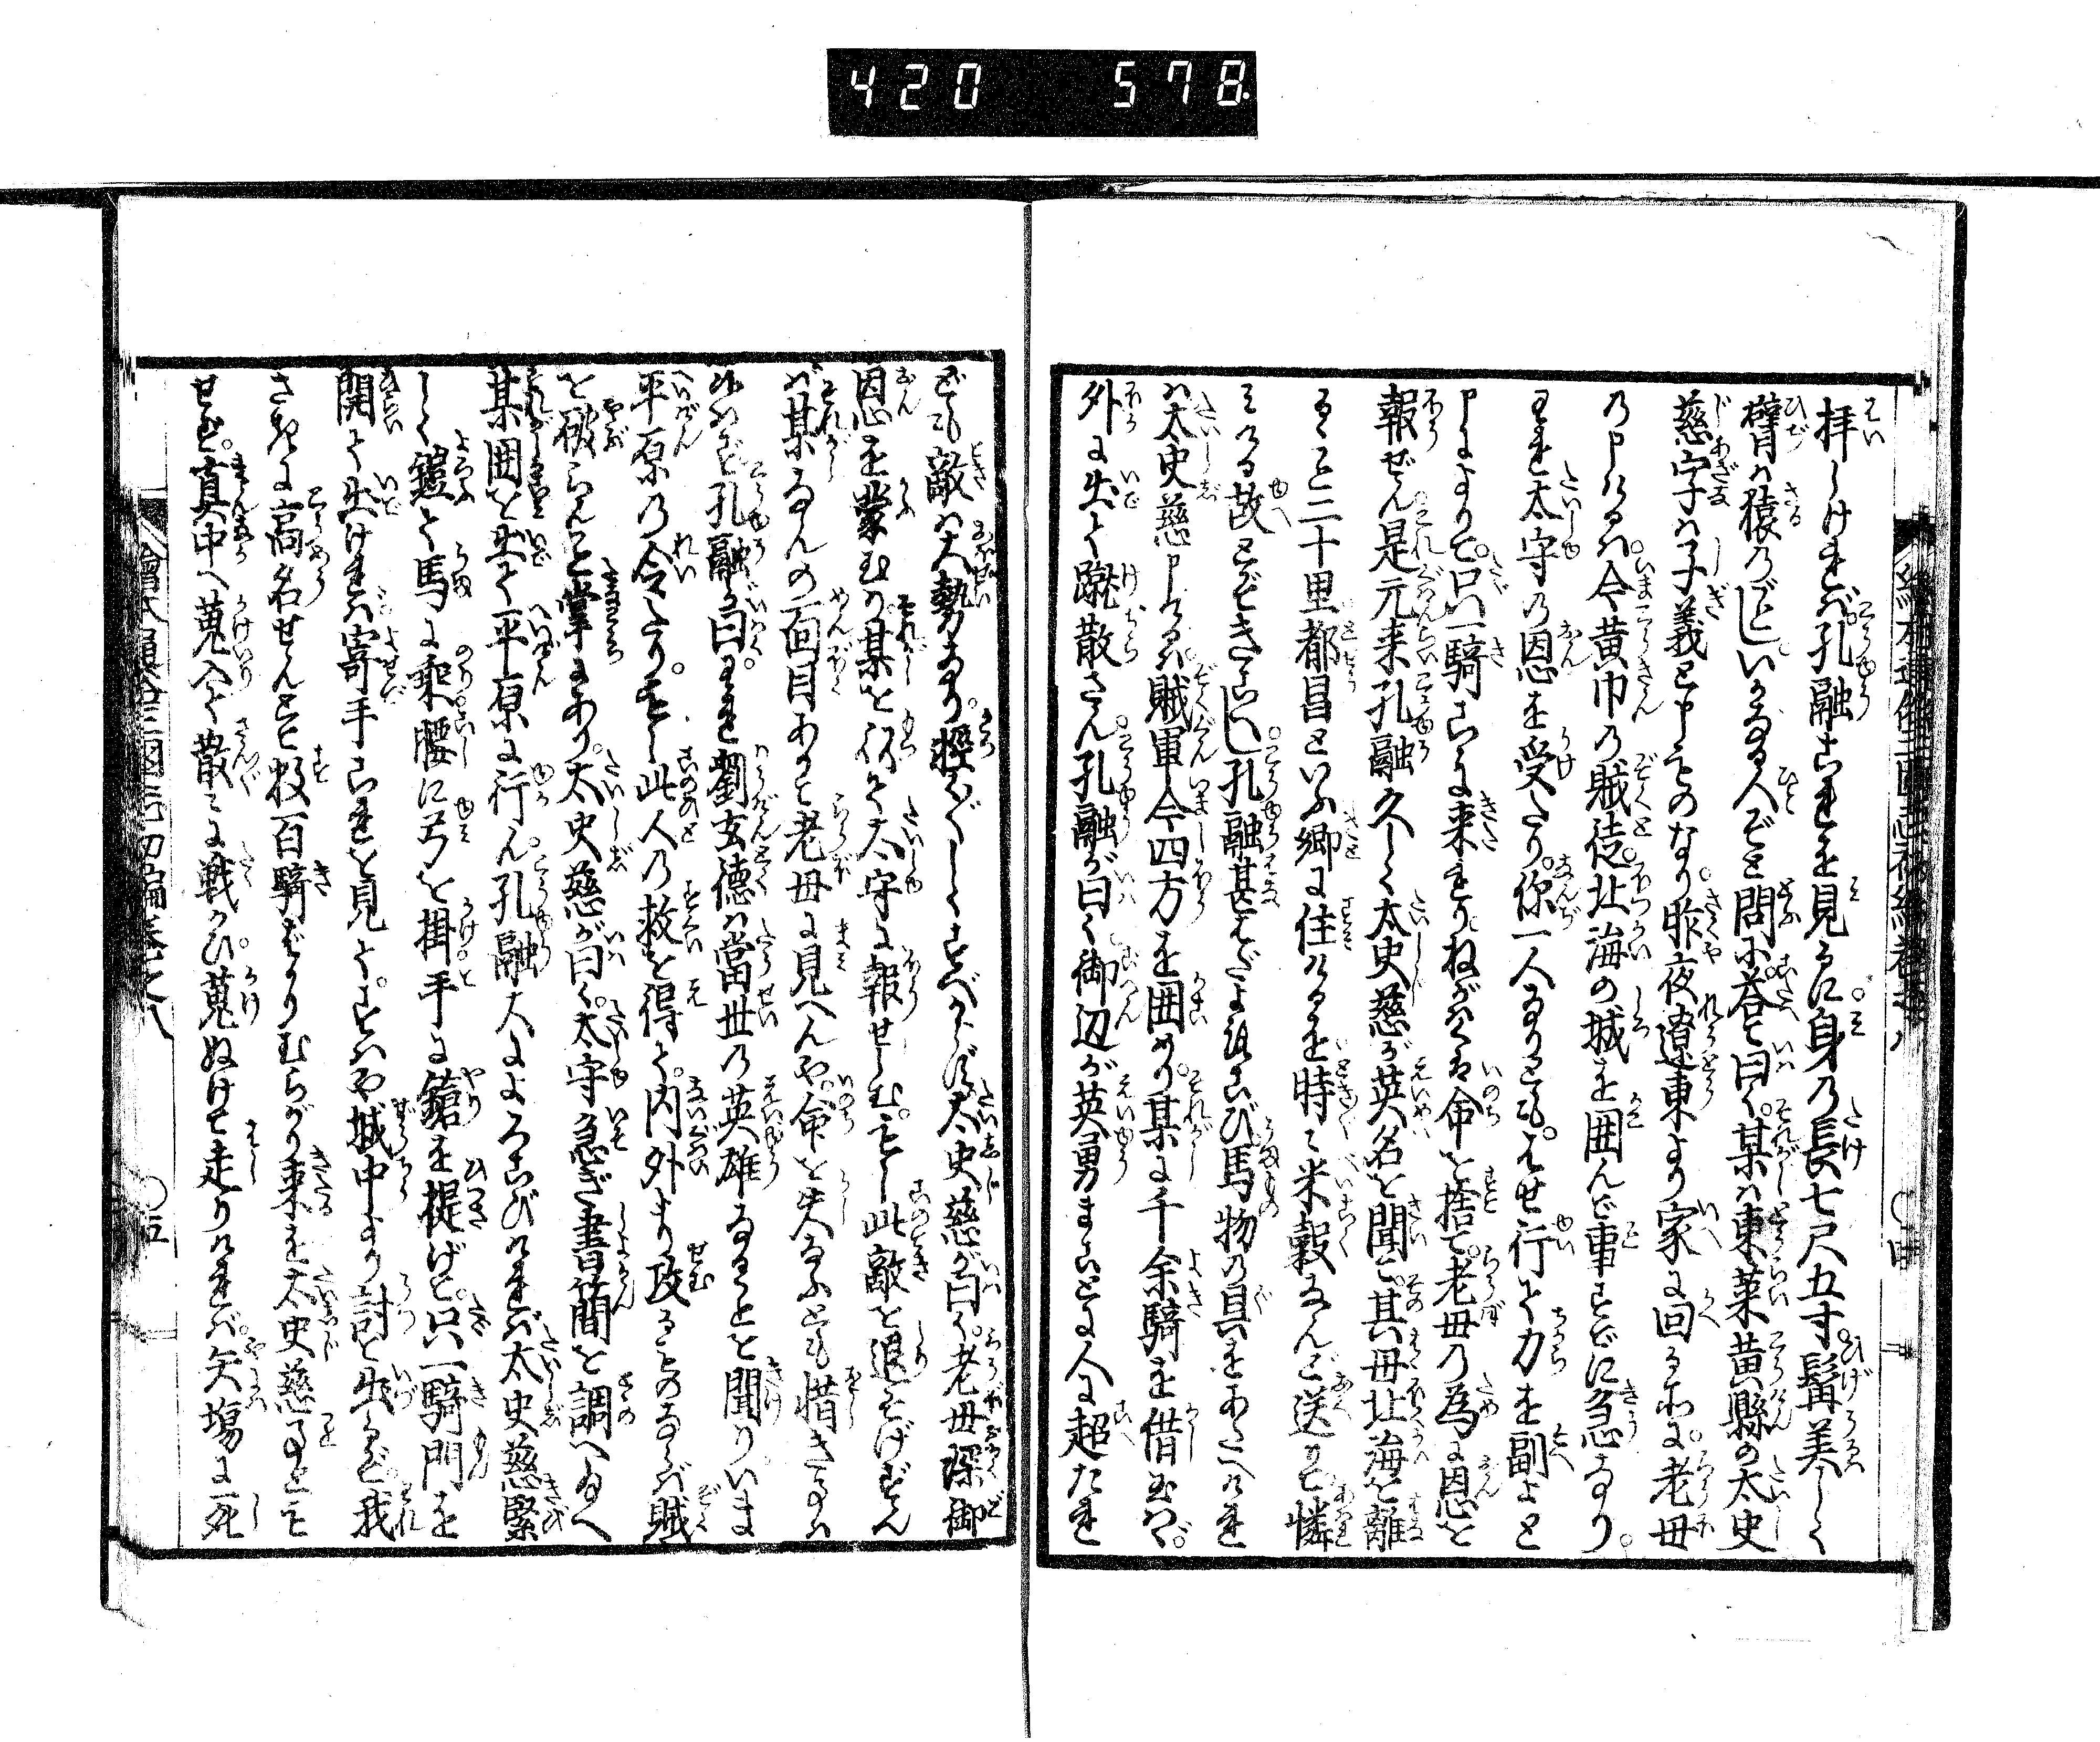 420 578.
拝しければ。孔融これを見るに。身の長七尺五寸。髯美しく
臂は猿のごとし。いかなる人ぞと問ふ。答て曰く。某は東莱黄縣の太史
慈字は子義と申ものなり。昨夜遼東より家に回る所に。老母
の申けるは。今黄巾の賊徒。北海の城を囲んで事すでに急なり。
われ太守の恩を受たり。你一人なりとも。はせ行て力を副よと
申によりて。只一騎こゝに来れり。ねがはくは命を捨て。老母の為に恩を
報ぜん。是元来孔融久しく太史慈が英名を聞て。其母北海を離
るゝこと二十里都昌といふ郷に住けるを。時々米穀なんど送りて憐
みける故とぞきこへし。孔融甚はだよろこび馬物の具をあたへければ
太史慈申けるは。賊軍今四方を囲めり。某に千余騎を借玉はゞ。
外に出て蹴散さん。孔融が曰く。御辺が英勇まことに人に超たれ
ども敵は大勢なり。軽々しくすべからず。太史慈が曰く。老母深く御
恩を蒙むり。某を以て太守に報せしむ。もし此敵を退ぞけずん
ば。某なんの面目ありて老母に見へんや。命を失なふとも惜きことは
候はず。孔融が曰。われ劉玄徳は當世の英雄なることを聞り。いま
平原の令たり。もし此人の救を得て。内外より攻ることのならば。賊
を破らんこと掌にあり。太史慈が曰く。太守急ぎ書簡を調へ玉へ
某囲を出て平原に行ん。孔融大によろこびければ。太史慈緊
しく鎧て馬に乗。腰に弓を掛。手に鎗を提げて。只一騎門を
開て出ければ。寄手これを見て。すはや城中より討て出るぞ。我
さきに高名せんとて数百騎ばかりむらがり来を。太史慈事ともせ
せず。真中へ蒐入て散々に戦かひ。蒐ぬけて走りければ。矢場に死